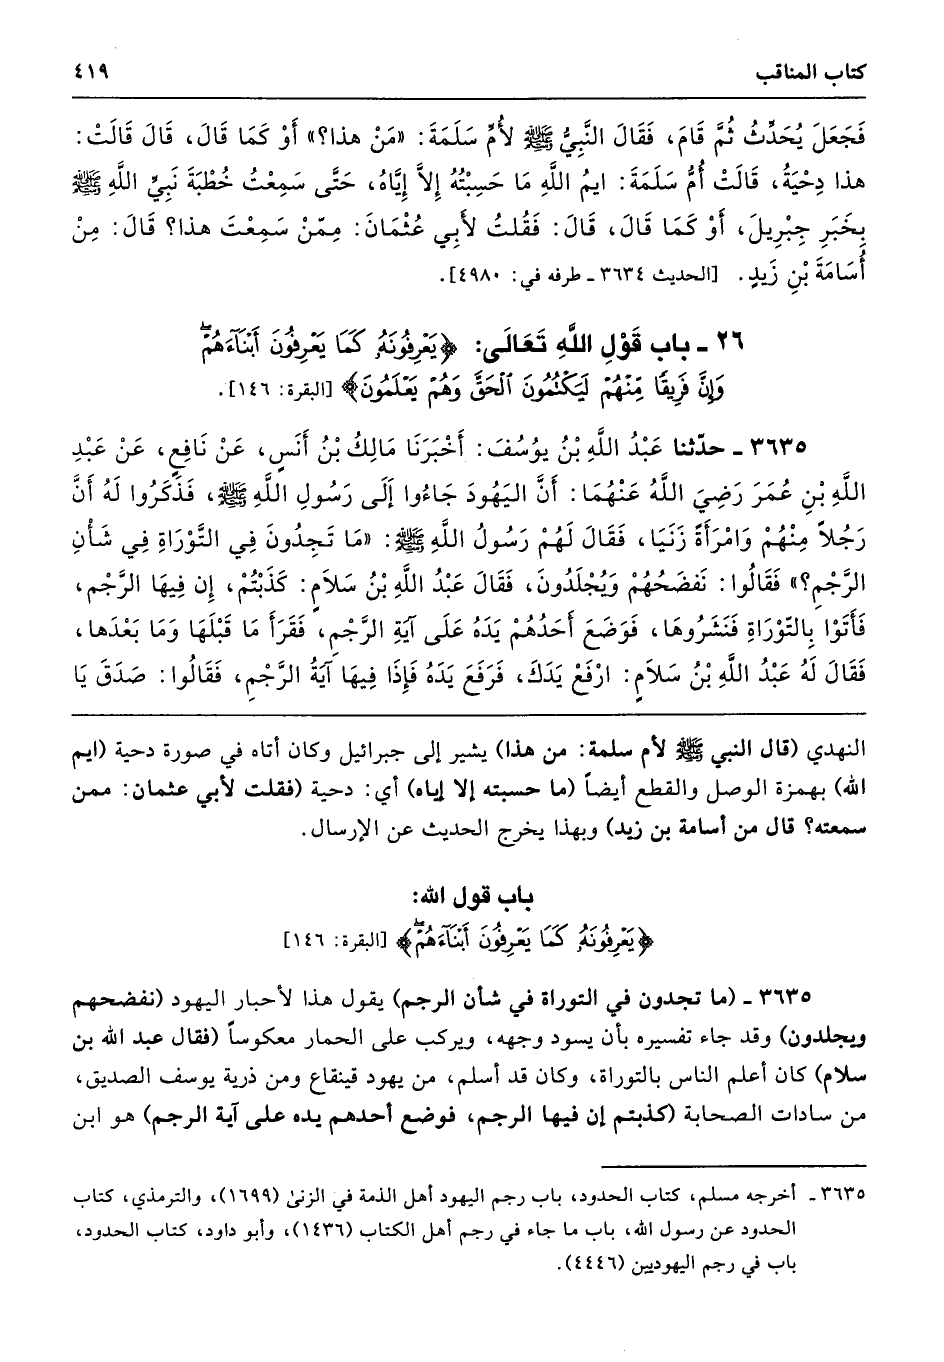 كتاب المناقب ٤١٩
فَجَعَلَ يُحَدِّثُ ثُمَّ قَامَ، فَقَالَ النَّبِيُّ ﷺ لأُمِّ سَلَمَةَ: «مَنْ هذا؟» أَوْ كَمَا قَالَ، قَالَ قَالَتْ:
هذا دِحْيَةُ، قَالَتْ أُمُّ سَلَمَةَ: ايمُ اللَّهِ مَا حَسِبْتُهُ إِلاَّ إِيَّاهُ، حَتَّى سَمِعْتُ خُطْبَةَ نَبِيِّ اللَّهِ ﷺ
بِخَبَرِ جِبْرِيلَ، أَوْ كَمَا قَالَ، قَالَ: فَقُلتُ لأَبِي عُثْمَانَ: مِمَّنْ سَمِعْتَ هذا؟ قَالَ: مِنْ
أُسَامَةَ بْنِ زَيدٍ. [الحديث ٣٦٣٤ ـ طرفه في: ٤٩٨٠].
٢٦ ـ باب قَوْلِ اللَّهِ تَعَالَى: ﴿يَعْرِفُونَهُ كَمَا يَعْرِفُونَ أَبْنَآءَهُمْۖ
وَإِنَّ فَرِيقًا مِّنْهُمْ لَيَكْتُمُونَ ٱلْحَقَّ وَهُمْ يَعْلَمُونَ﴾ [البقرة: ١٤٦].
٣٦٣٥ ـ حدّثنا عَبْدُ اللَّهِ بْنُ يوُسُفَ: أَخْبَرَنَا مَالِكُ بْنُ أَنَسٍ، عَنْ نَافِعٍ، عَنْ عَبْدِ
اللَّهِ بْنِ عُمَرَ رَضِيَ اللَّهُ عَنْهُمَا: أَنَّ اليَهُودَ جَاءُوا إِلَى رَسُولِ اللَّهِ ﷺ، فَذَكَرُوا لَهُ أَنَّ
رَجُلاً مِنْهُمْ وَامْرَأَةً زَنَيَا، فَقَالَ لَهُمْ رَسُولُ اللَّهِ ﷺ: «مَا تَجِدُونَ فِي التَّوْرَاةِ فِي شَأْنِ
الرَّجْمِ؟» فَقَالُوا: نَفضَحُهُمْ وَيُجْلَدُونَ، فَقَالَ عَبْدُ اللَّهِ بْنُ سَلاَمٍ: كَذَبْتُمْ، إِن فِيهَا الرَّجْمِ،
فَأَتَوْا بِالتَّوْرَاةِ فَنَشَرُوهَا، فَوَضَعَ أَحَدُهُمْ يَدَهُ عَلَى آيَةِ الرَّجْمِ، فَقَرَأَ مَا قَبْلَهَا وَمَا بَعْدَها،
فَقَالَ لَهُ عَبْدُ اللَّهِ بْنُ سَلاَمٍ: ارْفَعْ يَدَكَ، فَرَفَعَ يَدَهُ فَإِذَا فِيهَا آيَةُ الرَّجْمِ، فَقَالُوا: صَدَقَ يَا
النهدي (قال النبي ﷺ لأم سلمة: من هذا) يشير إلى جبرائيل وكان أتاه في صورة دحية (ايم
الله) بهمزة الوصل والقطع أيضاً (ما حسبته إلا إياه) أي: دحية (فقلت لأبي عثمان: ممن
سمعته؟ قال من أسامة بن زيد) وبهذا يخرج الحديث عن الإرسال.
باب قول الله:
﴿يَعْرِفُونَهُ كَمَا يَعْرِفُونَ أَبْنَآءَهُمْۖ﴾ [البقرة: ١٤٦]
٣٦٣٥ ـ (ما تجدون في التوراة في شأن الرجم) يقول هذا لأحبار اليهود (نفضحهم
ويجلدون) وقد جاء تفسيره بأن يسود وجهه، ويركب على الحمار معكوساً (فقال عبد الله بن
سلام) كان أعلم الناس بالتوراة، وكان قد أسلم، من يهود قينقاع ومن ذرية يوسف الصديق،
من سادات الصحابة (كذبتم إن فيها الرجم، فوضع أحدهم يده على آية الرجم) هو ابن
٣٦٣٥ ـ أخرجه مسلم، كتاب الحدود، باب رجم اليهود أهل الذمة في الزنىٰ (١٦٩٩)، والترمذي، كتاب
الحدود عن رسول الله، باب ما جاء في رجم أهل الكتاب (١٤٣٦)، وأبو داود، كتاب الحدود،
باب في رجم اليهوديين (٤٤٤٦).